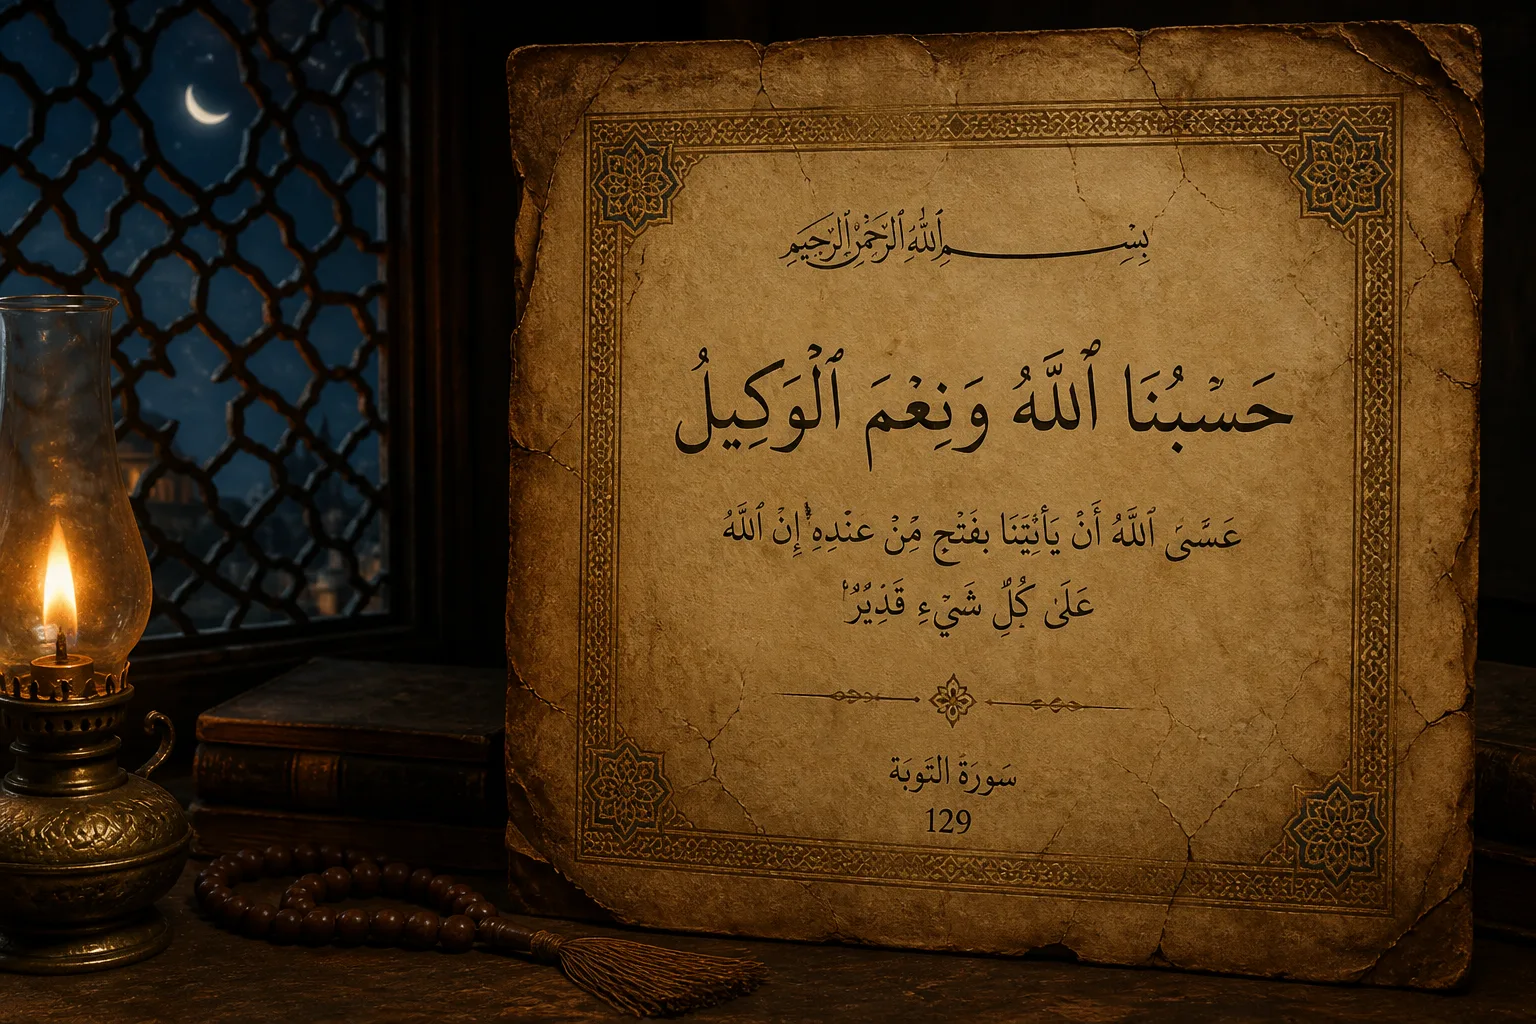 بِسْمِ ٱللَّهِ ٱلرَّحْمَٰنِ ٱلرَّحِيمِ
حَسْبُنَا ٱللَّهُ وَنِعْمَ ٱلْوَكِيلُ
عَسَىٰ ٱللَّهُ أَنْ يَأْتِيَنَا بِفَتْحٍ مِّنْ عِنْدِهِ إِنْ ٱللَّهُ
عَلَىٰ كُلِّ شَيْءٍ قَدِيرٌ
سُورَة التَوبَة
129